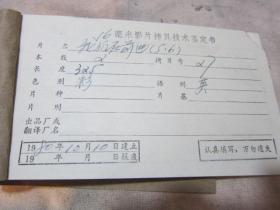 16毫米影片拷贝技术鉴定书
片名 (5.6)
本数 2 拷贝号 27
长度 325
色别 彩 语别 英
片种 片基
片别
出品厂或
翻译厂名
1980年10月10日建立
19 年 月 日报废
认真填写,万勿遗失